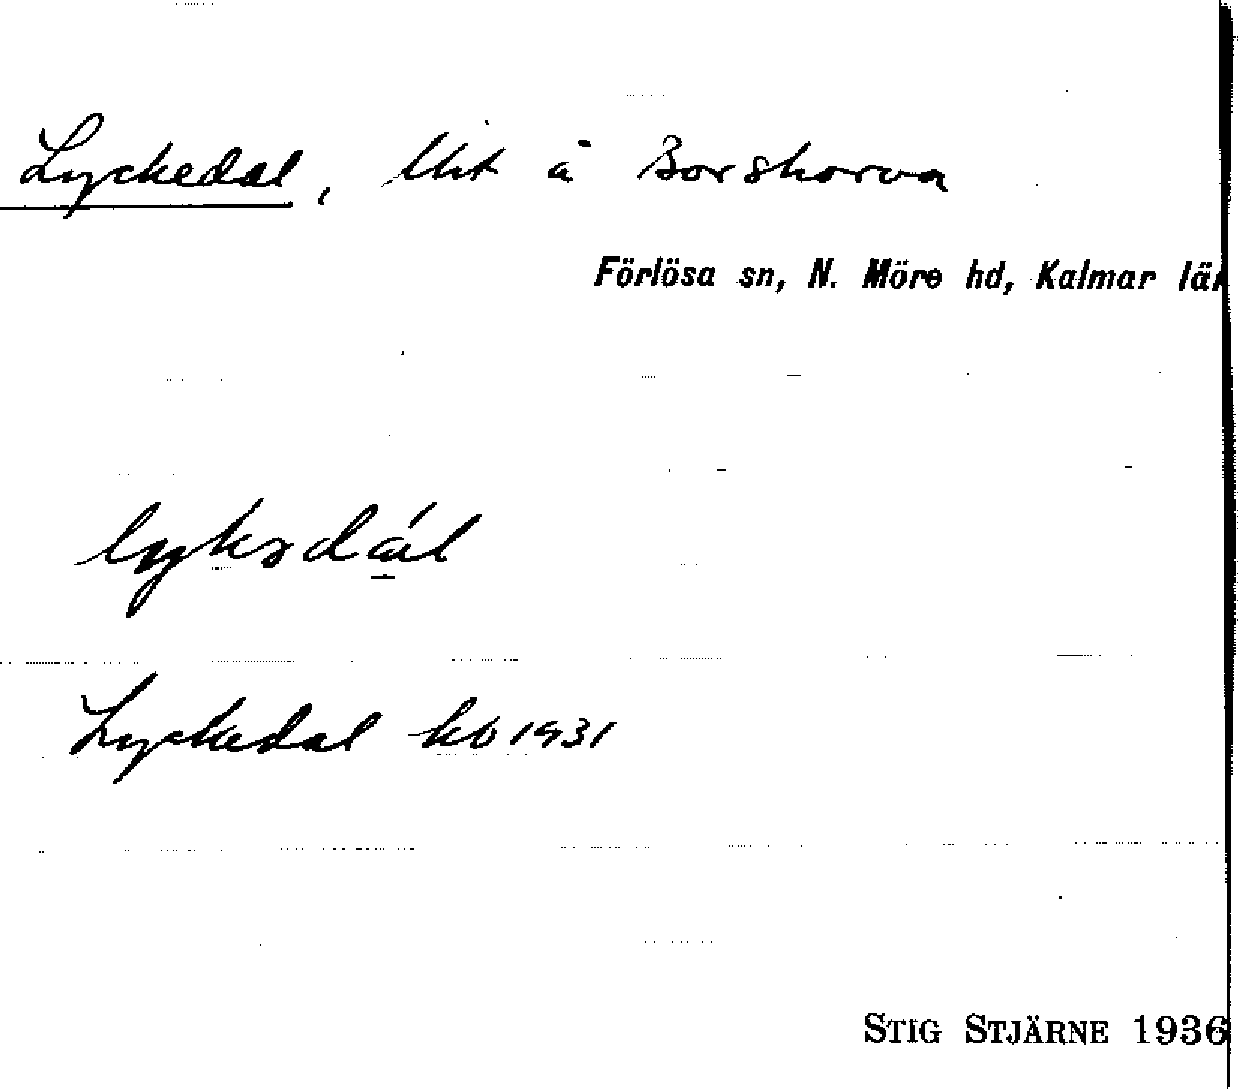 Lyckedal, lht å Borskorva
Förlösa sn, N. Möre hd, Kalmar län
lykədál
Lyckedal kb 1931
STIG STJÄRNE 1936